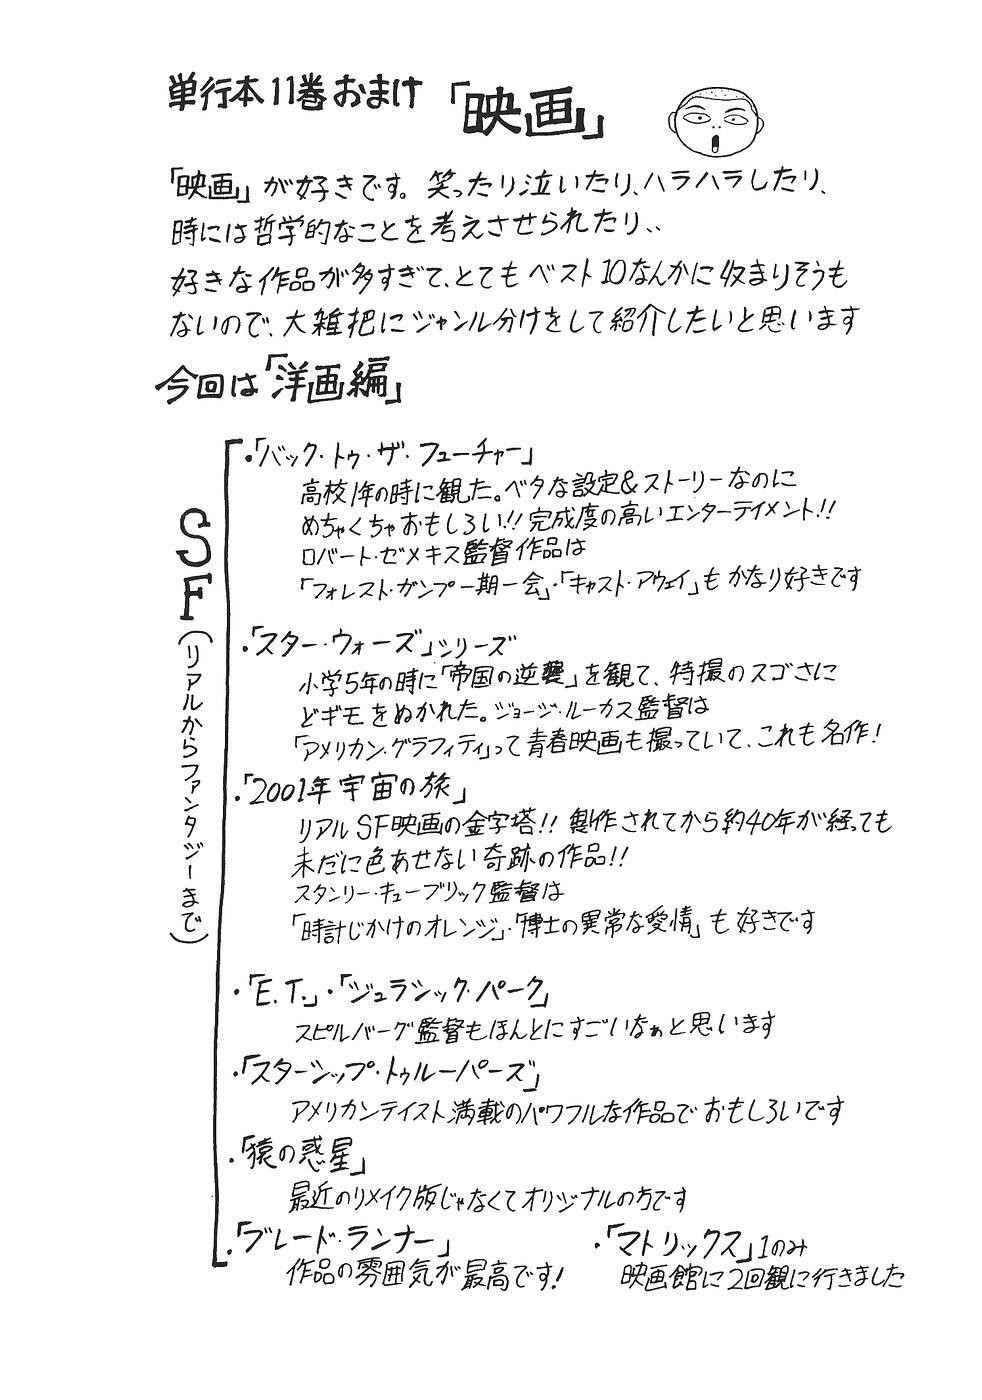 単行本11巻おまけ「映画」
「映画」が好きです。笑ったり泣いたり、ハラハラしたり、
時には哲学的なことを考えさせられたり、、
好きな作品が多すぎて、とてもベスト10なんかに収まりそうも
ないので、大雑把にジャンル分けをして紹介したいと思います
今回は「洋画編」
SF(リアルからファンタジーまで)
・「バック・トゥ・ザ・フューチャー」
高校1年の時に観た。ベタな設定&ストーリーなのに
めちゃくちゃおもしろい!!完成度の高いエンターテイメント!!
ロバート・ゼメキス監督作品は
「フォレスト・ガンプ一期一会」・「キャスト・アウェイ」もかなり好きです
・「スター・ウォーズ」シリーズ
小学5年の時に「帝国の逆襲」を観て、特撮のスゴさに
どギモをぬかれた。ジョージ・ルーカス監督は
「アメリカン・グラフィティ」って青春映画も撮っていて、これも名作!
・「2001年宇宙の旅」
リアルSF映画の金字塔!!製作されてから約40年が経っても
未だに色あせない奇跡の作品!!
スタンリー・キューブリック監督は
「時計じかけのオレンジ」・「博士の異常な愛情」も好きです
・「E.T.」・「ジュラシック・パーク」
スピルバーグ監督もほんとにすごいなぁと思います
・「スターシップ・トゥルーパーズ」
アメリカンテイスト満載のパワフルな作品でおもしろいです
・「猿の惑星」
最近のリメイク版じゃなくてオリジナルの方です
・「ブレード・ランナー」
作品の雰囲気が最高です!
・「マトリックス」1のみ
映画館に2回観に行きました